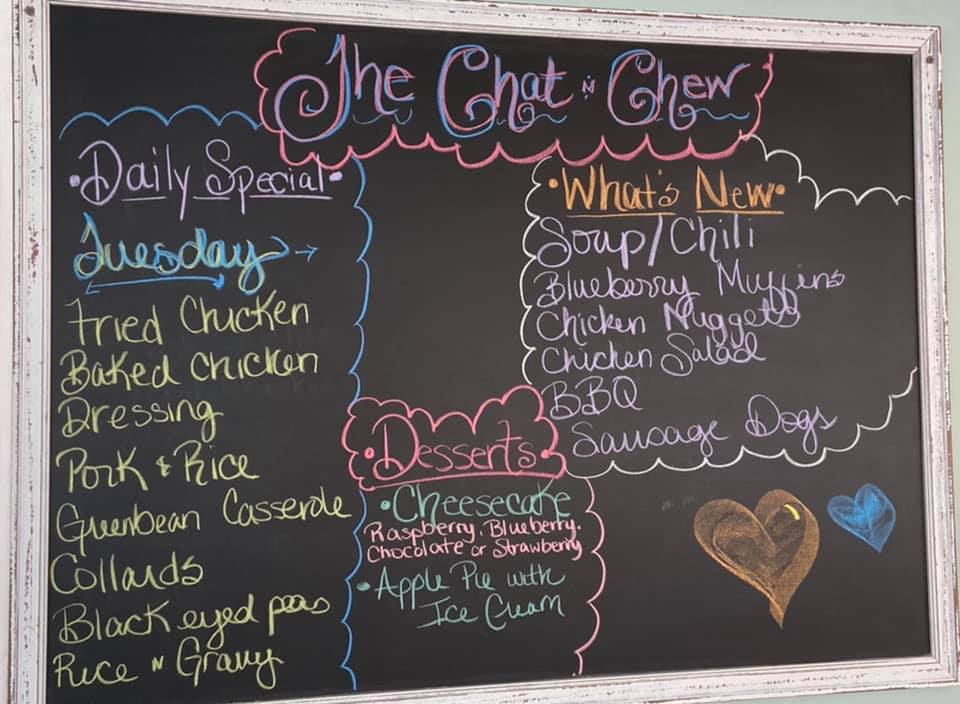 The Chat N Chew
Daily Special
Tuesday
Fried Chicken
Baked Chicken
Dressing
Pork & Rice
Greenbean Casserole
Collards
Black eyed peas
Rice N Gravy
What's New
Soup/Chili
Blueberry Muffins
Chicken Nuggets
Chicken Salad
BBQ
Sausage Dogs
Desserts
Cheesecake
Raspberry, Blueberry,
Chocolate or Strawberry
Apple Pie with
Ice Cream